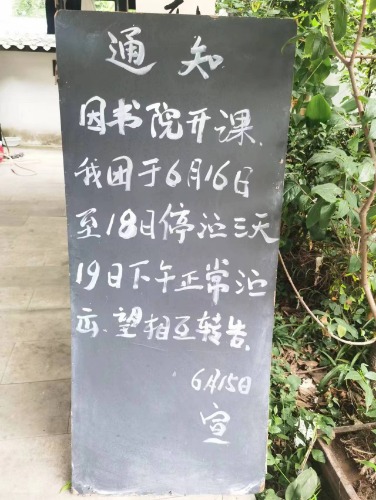 通知
因书院开课,
我团于6月16日
至18日停演三天
19日下午正常演
出.望相互转告.
6月15日
宣